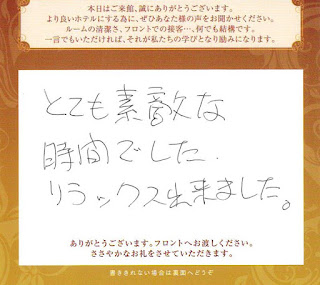 本日はご来館、誠にありがとうございます。
より良いホテルにする為に、ぜひあなた様の声をお聞かせください。
ルームの清潔さ、フロントでの接客…、何でも結構です。
一言でもいただければ、それが私たちの学びとなり励みになります。
とても素敵な
時間でした.
リラックス出来ました。
ありがとうございます。フロントへお渡しください。
ささやかなお礼をさせていただきます。
書ききれない場合は裏面へどうぞ